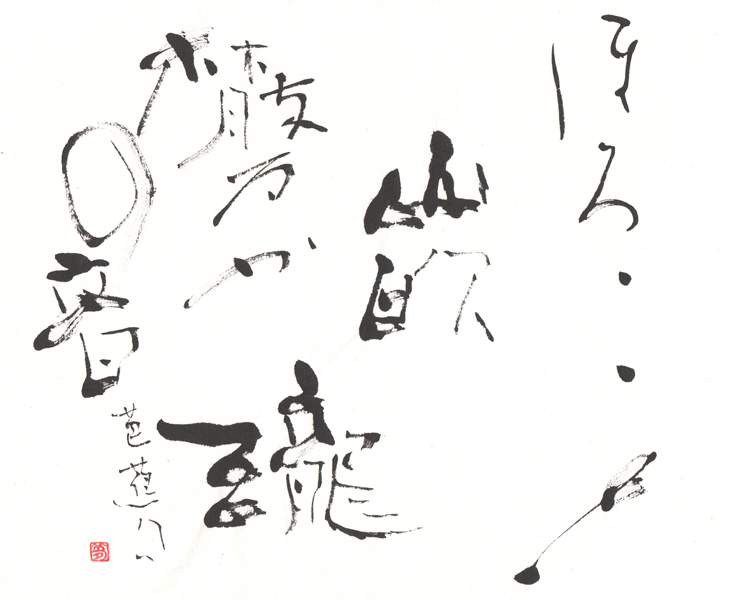 ほろ・・と
山吹
散るか
瀧
の音
芭蕉